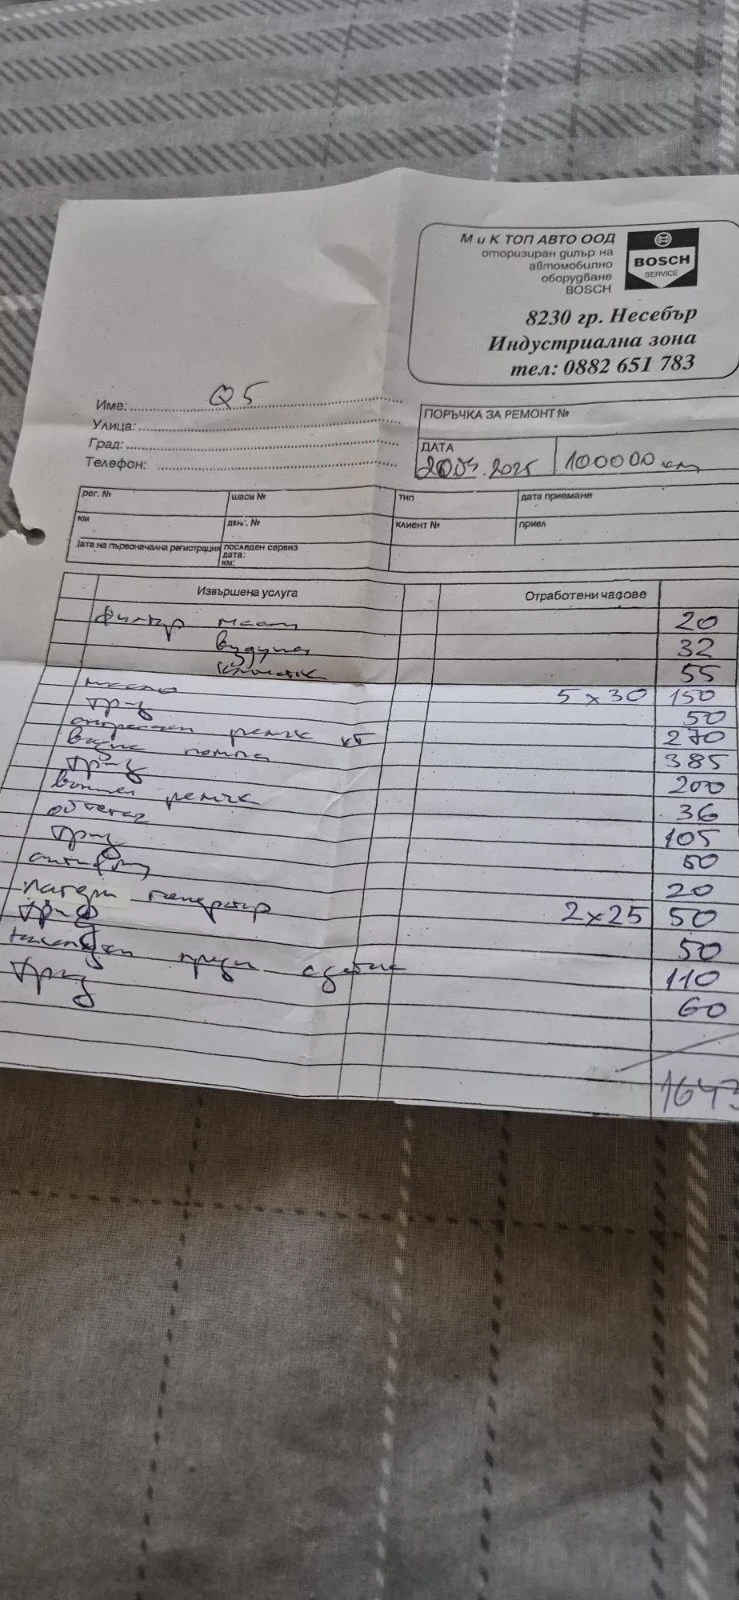 М и К ТОП АВТО ООД
оторизиран дилър на
автомобилно
оборудване
BOSCH
BOSCH
SERVICE
8230 гр. Несебър
Индустриална зона
тел: 0882 651 783
Име: Q5
Улица:
Град:
Телефон:
ПОРЪЧКА ЗА РЕМОНТ №
ДАТА
2025 100000 км
рег. № шаси № тип дата приемане
км двиг. № клиент № приел
дата на първоначална регистрация последен сервиз
дата:
км:
Извършена услуга Отработени часове
филтър масл 20
въздушен 32
55
масло 5 x 30 150
труд 50
ремък кт 270
водна помпа 385
труд 200
ремък 36
обтегач 105
труд 50
антифриз 20
лагери генератор 2 x 25 50
труд 50
накладки предни 110
труд 60
1643